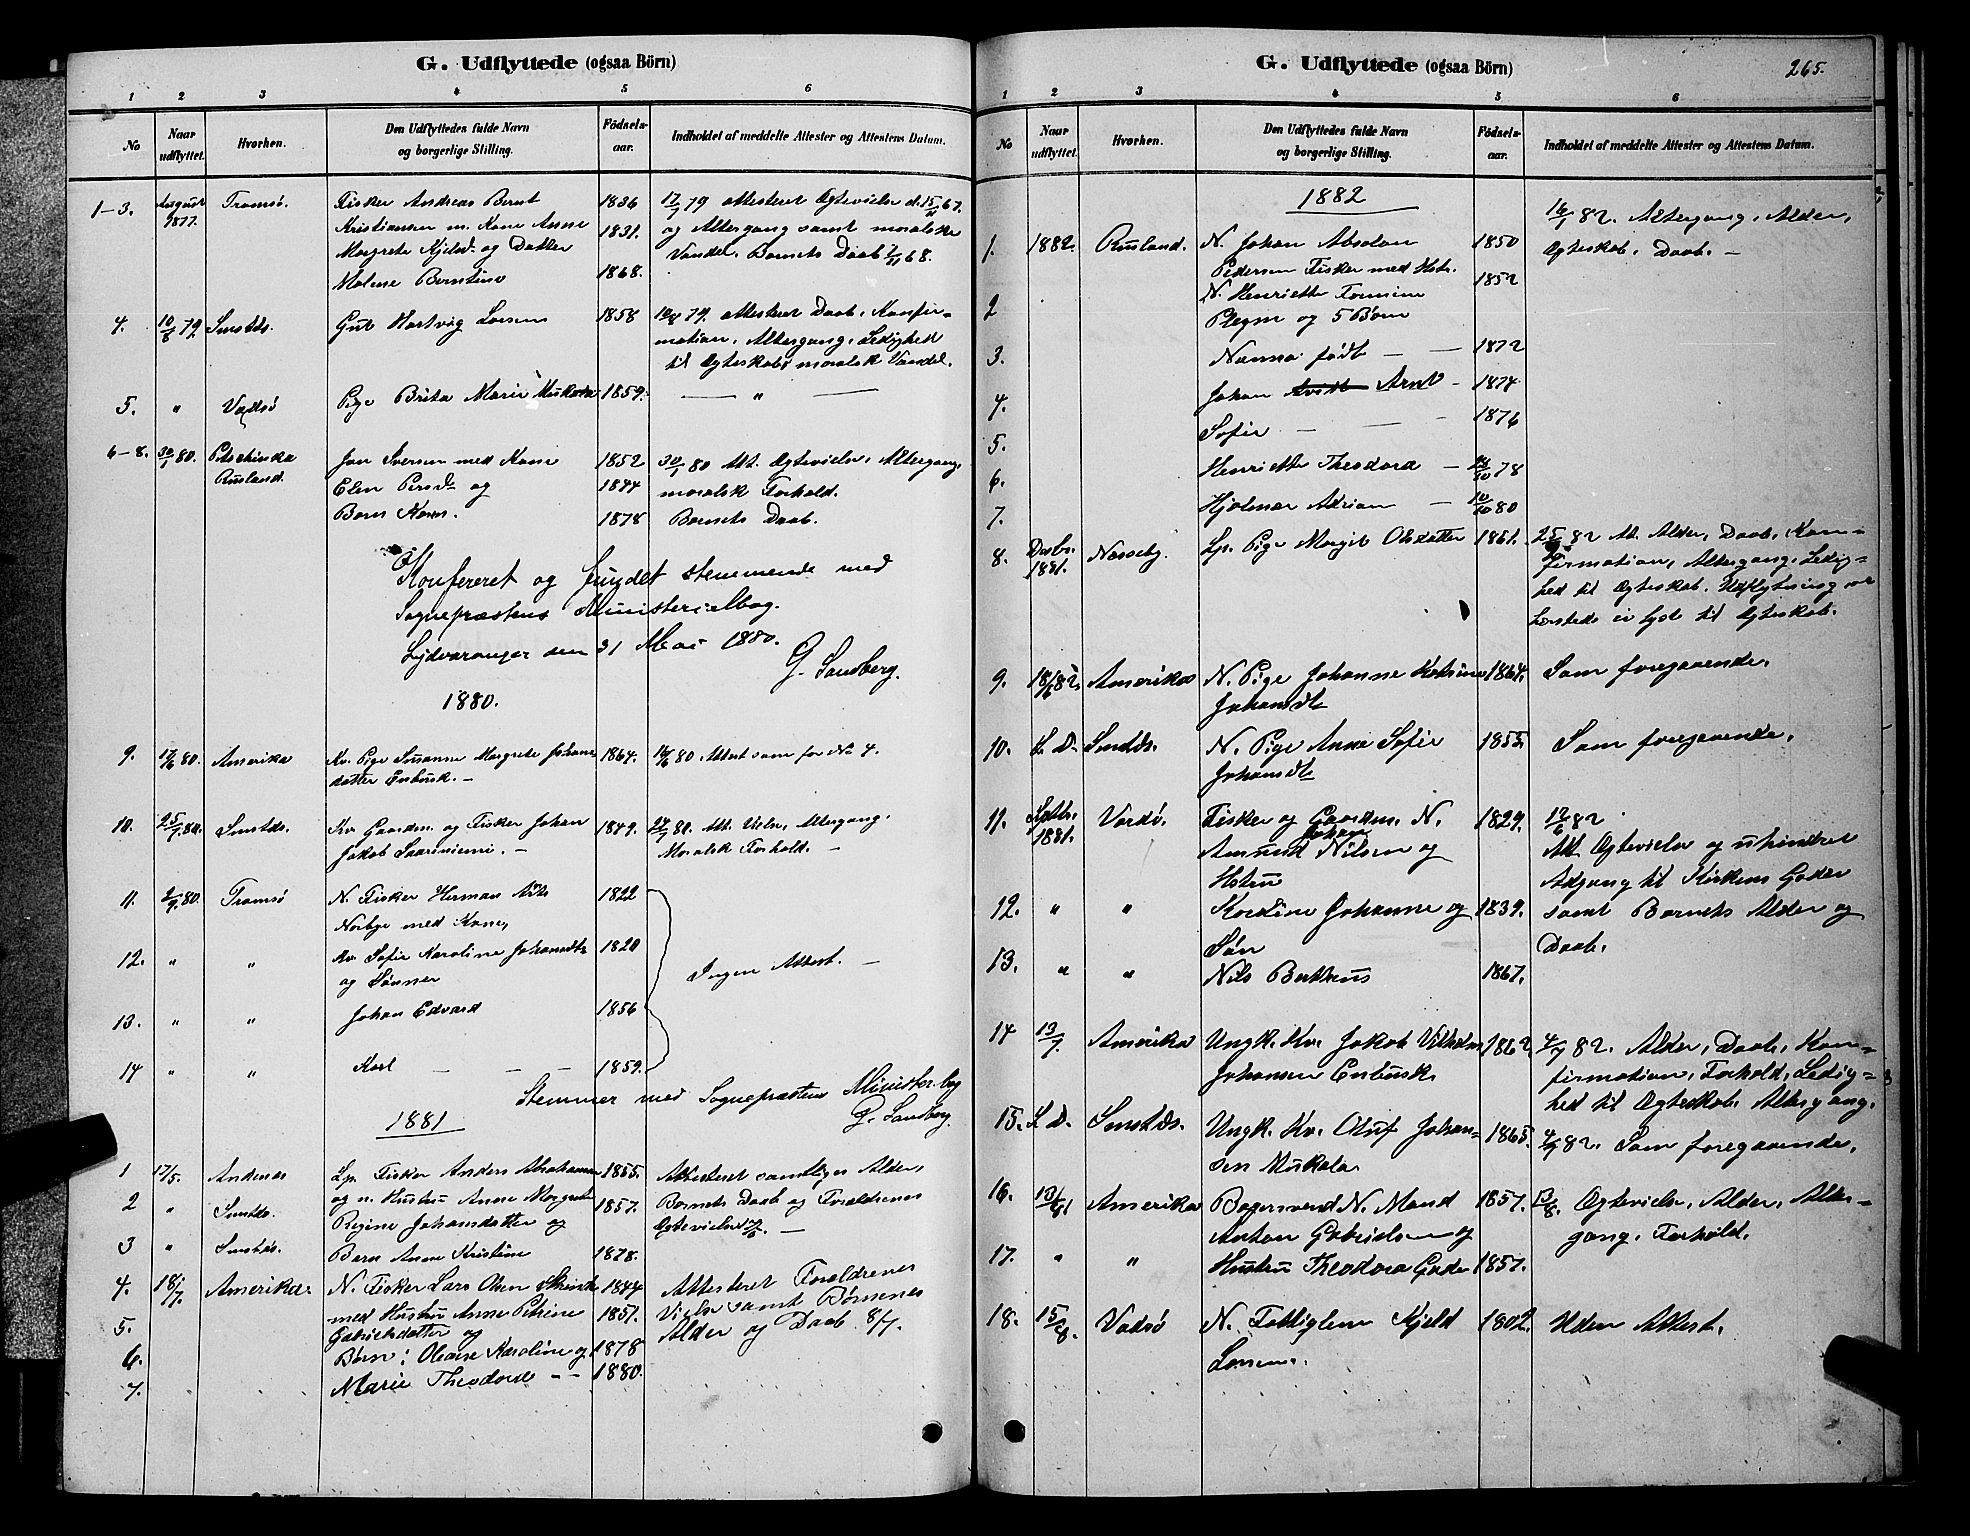 G. Udflyttede (ogsaa Börn)
1 2 3 4 5 6
No Naar udflyttet. Hvorhen. Den Udflyttedes fulde Navn og borgerlige Stilling. Födselsaar. Indholdet af meddelte Attester og Attestens Datum.
1-3. August Tromsø. Fisker Andreas Bernt 1836 17/1 79 attesteret Ægtevielse d. 15/11 67.
1877. Kristiansen m. Kone Anne 1831. og Altergang samt moralske
Margrete Kjelsd. og Datter Vandel. Barnets Daab 68.
Malene Berntine 1868.
4. 10/8 79. Smstds. Gut Hartvig Larsen 1858 10/8 79. attesteret Daab, Konfir-
mation, Altergang, Ledighed
til Ægteskab, moralsk Vandel.
5. " Vadsø Pige Brita Marie 1859. — " —
6-8. 30/1 80. Petschinka Jon Iversen med Kone 1852 30/1 80 Att. Ægtevielse, Altergang,
Rusland. Elen Persd. og 1844 moralsk Forhold.
Barn Karen. 1878 Barnets Daab.
Konfereret og fundet stemmende med
Sognepræstens Ministerialbog.
Sydvaranger den 31 Mai 1880.
G. Sandberg.
1880.
9. 17/6 80. Amerika Kv. Pige Susanne Margrete Johans 1864. 16/6 80. Attest som for No 4.
datter Enbusk. —
10. 25/7 80. Smstds. Kv. Gaardm. og Fisker Johan 1849. 24/7 80. Att. Vielse, Altergang,
Jakob Saariniemi. — Moralsk Forhold. —
11. 2/9 80. Tromsø N. Fisker Herman 1822
Norbye med Kone,
12. " " Kv. Sofie Karoline Johansdtr 1820
og Sønner Ingen Attest. —
13. " " Johan Edvard 1856
14 " " Karl — — — 1859.
Stemmer med Sognepræstens Minister.bog
1881 G. Sandberg.
1 17/5. Andenæs Lp. Fisker Anders Abrahamsen 1855. Attesteret samtliges Alder,
2 " Smstds. og n. Hustru Anne Margrete 1857. Barnets Daab og Forældrenes
Regine Johansdatter og Ægtevielse
3 " Smstds. Barn Anne Kristine 1878.
4. 18/7. Amerika. N. Fisker Lars Olsen 1844 Attesteret Forældrenes
5. med Hustru Anne Petrine 1851. Vielse samt Børnenes
Gabrielsdatter og Alder og Daab 8/7.
6. Børn: Oleane Karoline og 1878
7. Marie Theodora — — 1880.
G. Udflyttede (ogsaa Börn) 265.
1 2 3 4 5 6
No Naar udflyttet. Hvorhen. Den Udflyttedes fulde Navn og borgerlige Stilling. Födselsaar. Indholdet af meddelte Attester og Attestens Datum.
1882
1. 1882. Rusland. N. Johan Absalon 1850 16/1 82. Altergang, Alder,
Pedersen Fisker med Hstr. Ægteskab, Daab. —
2 N. Henriette Formine 1852
og 5 Børn
3. Nanna født — — 1872
4. Johan Arnt — 1874
5. Sofie — — — 1876
6. Henriette Theodora — 78
7. Hjalmar Adrian — 10/10 80
8. Decbr. 1881. Næsseby. Lp. Pige Margit Olsdatter 1861. 25/5 82 Att. Alder, Daab, Kon-
firmation, Altergang, Ledig-
hed til Ægteskab. Udflytning
ei lyst til Ægteskab.
9. 18/6 82. Amerika N. Pige Johanne Katrine 1864. Som foregaaende.
Johansdtr
10. S. D. Smstds. N. Pige Anne Sofie 1855. Som foregaaende.
Johansdtr
11. Septbr. Vardø. Fisker og Gaardm. N. 1829. 12/6 82
1881. Amund Johan Nilsen og Att. Ægtevielse og uhindret
Hstru Adgang til Kirkens Goder
12. " " Karoline Johanne og 1839. samt Barnets Alder og
Søn Daab.
13. " " Nils Bertheus 1867.
14 13/7. Amerika Ungk. Kv. Jakob Vilhelm 1862. 4/7 82. Alder, Daab, Kon-
Johansen Enbusk. firmation, Forhold, Ledig-
hed til Ægteskab. Altergang.
15. S. D. Smstds. Ungk. Kv. Oluf Johan- 1865. 4/7 82. Som foregaaende,
sen Mukala
16. 13/8 Amerika Bagersvend N. Mand 1857. 13/8. Ægtevielse, Alder, Alter-
Anton Gabrielsen og gang, Forhold.
17. " " Hustru Theodora 1857.
18. 15/8. Vadsø N. Fattiglem Kjeld 1802. Uden Attest.
Larsen.